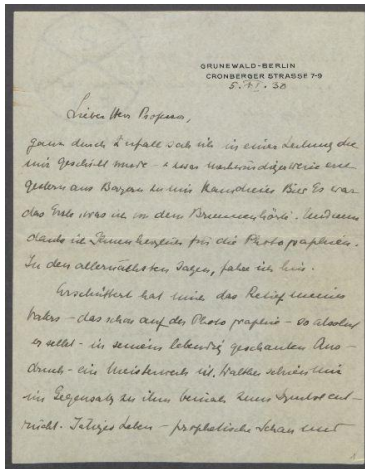 GRUNEWALD-BERLIN
CRONBERGER STRASSE 7-9
5. VI. 30
Lieber Herr Professor,
ganz durch Zufall sah ich in einer Zeitung die
mir geschickt wurde
gestern aus Bozen zu mir Es war
das Erste was ich von dem Brunnen hörte. Und nun
danke ich Ihnen für die Photographien.
In den allernächsten Tagen fahre ich hin.
Erschüttert hat mich das Relief meines
Vaters - das schon auf der Photographie - so absolut
er selbst - in seinem lebendig geschauten Aus-
druck - ein Meisterwerk ist. Walther scheint mir
im Gegensatz zu ihm beinah zum Symbol ent-
rückt. Leben - prophetische Schau und